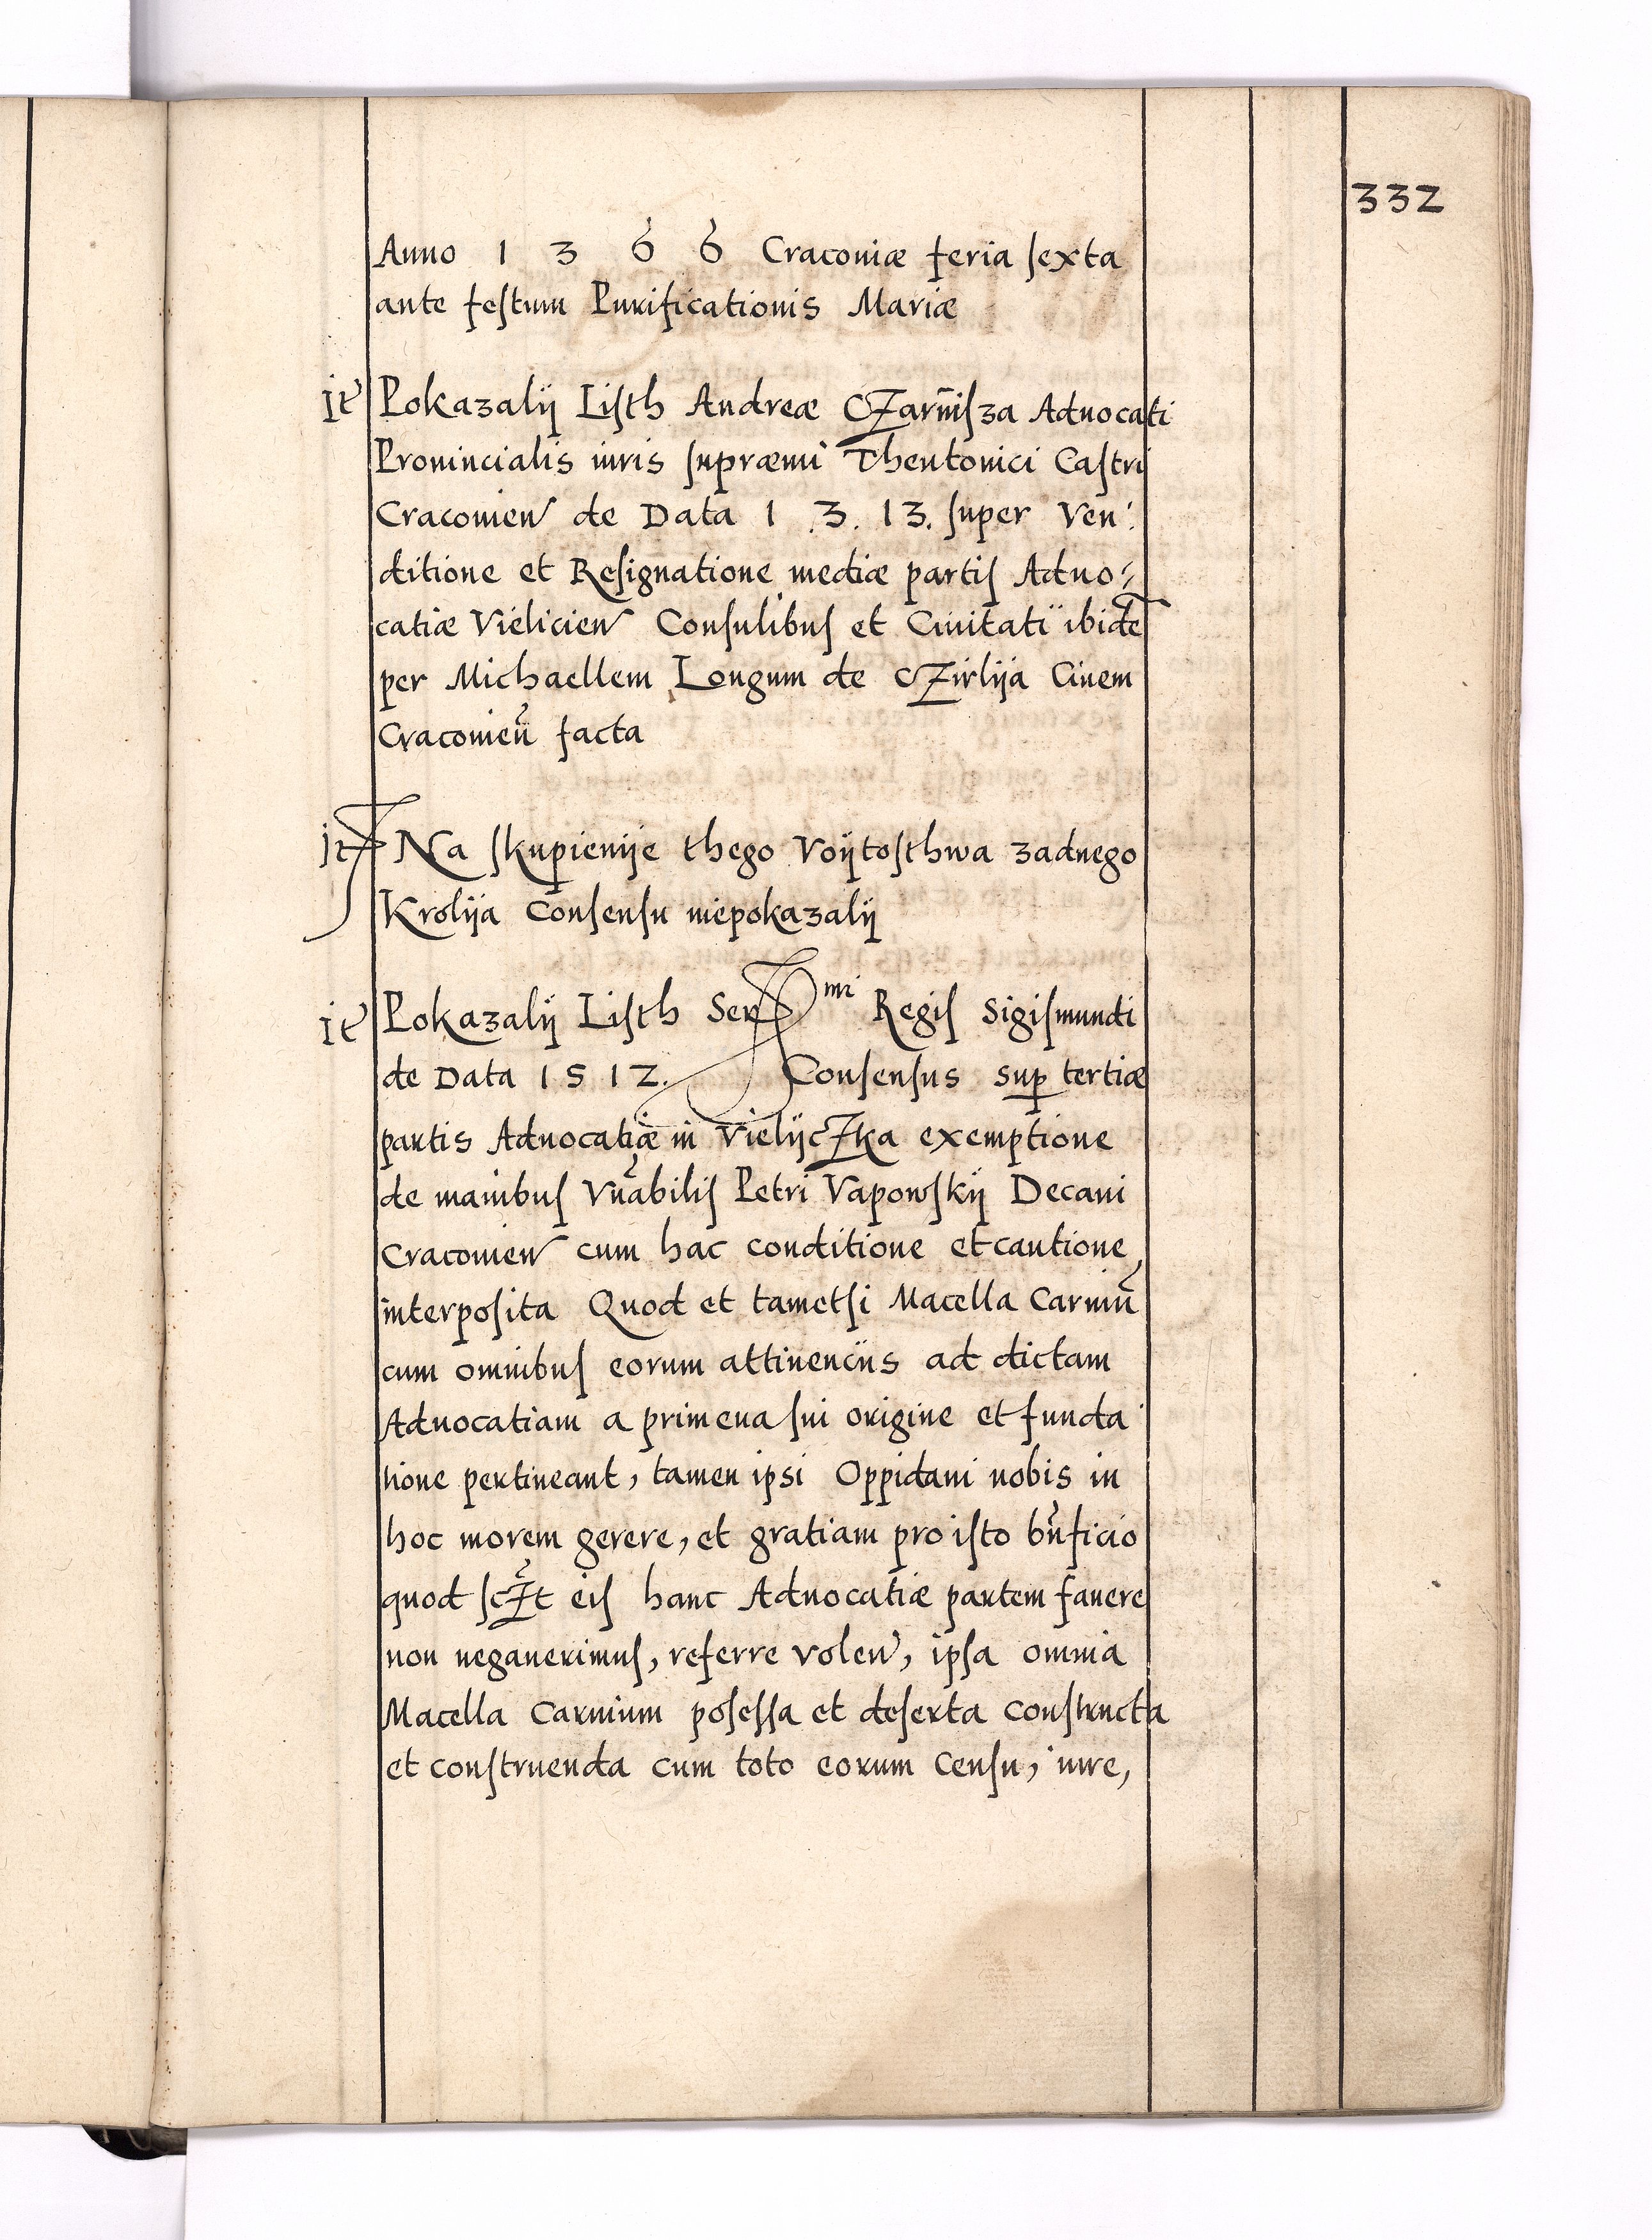 332
Anno 1 3 6 6 Cracoviæ feria sexta
ante festum Purificationis Mariæ
it Pokazalÿ Listh Andreæ Czarnisza Aduocati
Prouincialis iuris supræmi Theutonici Castri
Cracouien de Data 1 3. 13. super Ven
ditione et Resignatione mediæ partis Aduo=
catiæ Vielicien Consulibus et Ciuitati ibidē
per Michaellem Longum de Czirlÿa Ciuem
Cracouien̄ facta
it Na skupienÿe thego Voÿtosthwa zadnego
Krolÿa Consensu niepokazalÿ
it Pokazalÿ Listh Ser mi Regis Sigismundi
de Data 1 5 1 2. Consensus sup tertiæ
partis Aduocatiæ in Vielÿczka exemptione
de manibus Vn̄abilis Petri Vapowskÿ Decani
Cracouien cum hac conditione et cautione
interposita Quod et tametsi Macella Carniū
cum omnibus eorum attinenciis ad dictam
Aduocatiam a primeua sui origine et funda
tione pertineant, tamen ipsi Oppidani nobis in
hoc morem gerere, et gratiam pro isto bn̄ficio
quod sczt eis hanc Aduocatiæ partem fauere
non negauerimus, referre volen, ipsa omnia
Macella Carnium posessa et deserta constructa
et construenda cum toto eorum Censu, iure,